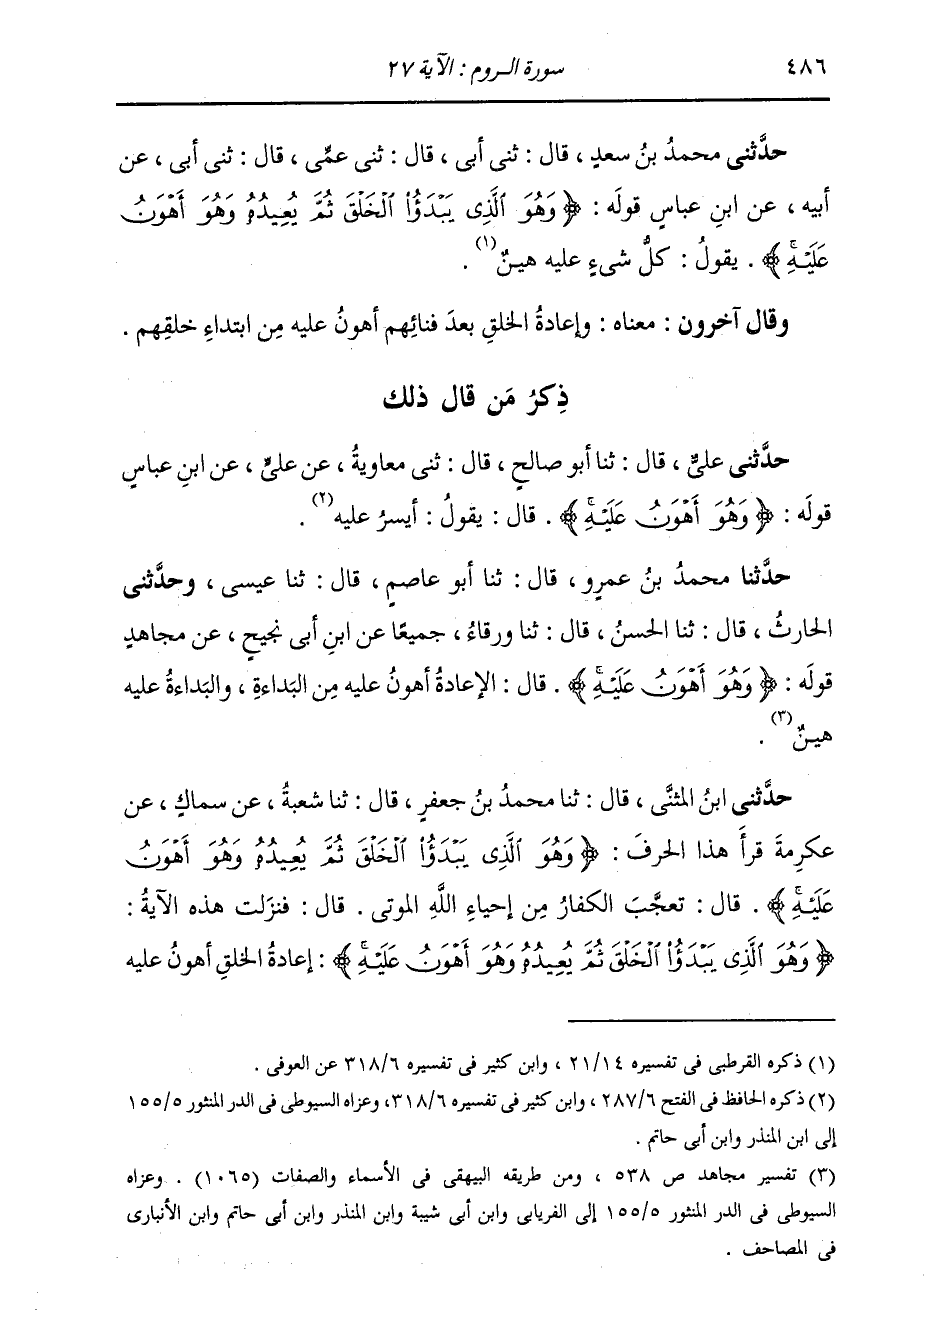 ٤٨٦ سورة الروم : الآية ٢٧
حدَّثنى محمدُ بنُ سعدٍ ، قال : ثنى أبى ، قال : ثنى عمِّى ، قال : ثنى أبى ، عن
أبيه ، عن ابنِ عباسٍ قولَه : ﴿ وَهُوَ ٱلَّذِى يَبْدَؤُا۟ ٱلْخَلْقَ ثُمَّ يُعِيدُهُۥ وَهُوَ أَهْوَنُ
عَلَيْهِ ۚ ﴾ . يقولُ : كلُّ شىءٍ عليه هينٌ(١) .
وقال آخرون : معناه : وإعادةُ الخلقِ بعدَ فنائِهم أهونُ عليه مِن ابتداءِ خلقِهم .
ذِكرُ مَن قال ذلك
حدَّثنى علىٌّ ، قال : ثنا أبو صالحٍ ، قال : ثنى معاويةُ ، عن علىٍّ ، عن ابنِ عباسٍ
قولَه : ﴿ وَهُوَ أَهْوَنُ عَلَيْهِ ۚ ﴾ . قال : يقولُ : أيسرُ عليه(٢) .
حدَّثنا محمدُ بنُ عمرٍو ، قال : ثنا أبو عاصمٍ ، قال : ثنا عيسى ، وحدَّثنى
الحارثُ ، قال : ثنا الحسنُ ، قال : ثنا ورقاءُ ، جميعًا عن ابنِ أبى نجيحٍ ، عن مجاهدٍ
قولَه : ﴿ وَهُوَ أَهْوَنُ عَلَيْهِ ۚ ﴾ . قال : الإعادةُ أهونُ عليه مِن البَداءةِ ، والبَداءةُ عليه
هينٌ(٣) .
حدَّثنى ابنُ المثنَّى ، قال : ثنا محمدُ بنُ جعفرٍ ، قال : ثنا شعبةُ ، عن سماكٍ ، عن
عكرِمةَ قرأَ هذا الحرفَ : ﴿ وَهُوَ ٱلَّذِى يَبْدَؤُا۟ ٱلْخَلْقَ ثُمَّ يُعِيدُهُۥ وَهُوَ أَهْوَنُ
عَلَيْهِ ۚ ﴾ . قال : تعجَّبَ الكفارُ مِن إحياءِ اللَّهِ الموتى . قال : فنزَلت هذه الآيةُ :
﴿ وَهُوَ ٱلَّذِى يَبْدَؤُا۟ ٱلْخَلْقَ ثُمَّ يُعِيدُهُۥ وَهُوَ أَهْوَنُ عَلَيْهِ ۚ ﴾ : إعادةُ الخلقِ أهونُ عليه
(١) ذكره القرطبى فى تفسيره ٢١/١٤ ، وابن كثير فى تفسيره ٣١٨/٦ عن العوفى .
(٢) ذكره الحافظ فى الفتح ٢٨٧/٦ ، وابن كثير فى تفسيره ٣١٨/٦، وعزاه السيوطى فى الدر المنثور ١٥٥/٥
إلى ابن المنذر وابن أبى حاتم .
(٣) تفسير مجاهد ص ٥٣٨ ، ومن طريقه البيهقى فى الأسماء والصفات (١٠٦٥) . وعزاه
السيوطى فى الدر المنثور ١٥٥/٥ إلى الفريابى وابن أبى شيبة وابن المنذر وابن أبى حاتم وابن الأنبارى
فى المصاحف .